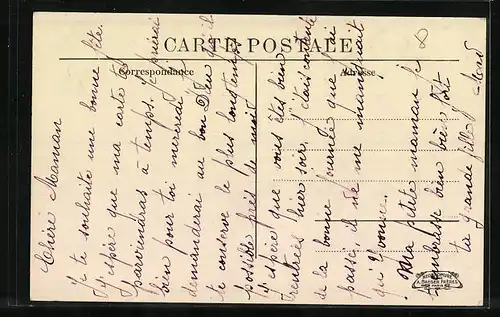 CARTE POSTALE
Correspondance
Adresse
Chère Maman
Je te souhaite une bonne fête.
J'espère que ma carte te
parviendras à temps. Je prierai
bien pour toi mercredi je
demanderai au bon Dieu qu'il
te conserve le plus longtemps
possible près de moi
J'espère que vous êtes bien
rentrées hier soir, j'étais contente
de la bonne journée que j'ai
passé, il ne me manquait
qu'Yvonne.
Ma petite maman je
t'embrasse bien bien fort
ta grande fille